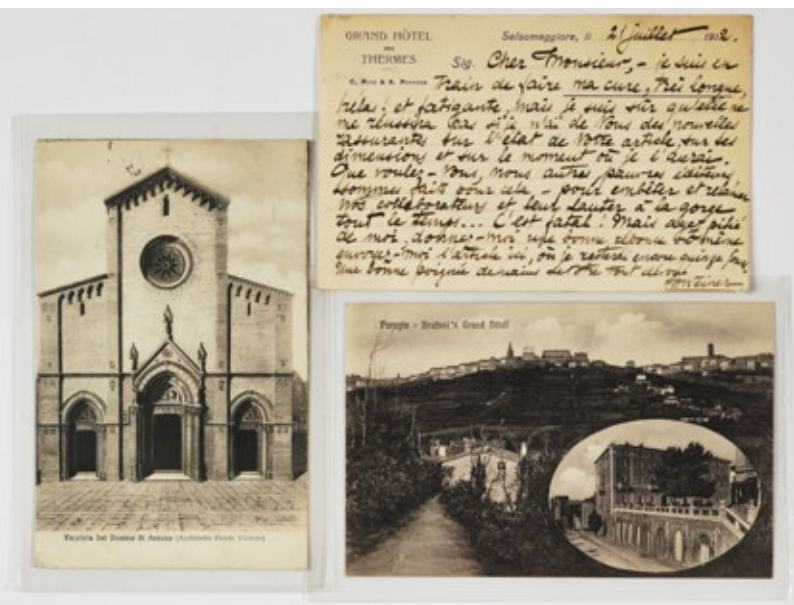 GRAND HÔTEL
DES
THERMES
Salsomaggiore, li 21 juillet 1912.
Sig. Cher Monsieur, – je suis en
train de faire ma cure, très longue,
hélas! et fatigante, mais je suis sûr qu'elle ne
me réussira pas si je n'ai de Vous des nouvelles
rassurantes sur l'état de Votre article, sur ses
dimensions et sur le moment où je l'aurai.
Que voulez-Vous, nous autres pauvres éditeurs
sommes faits pour cela, – pour embêter et
nos collaborateurs et leur sauter à la gorge
tout le temps... C'est fatal! Mais ayez pitié
de moi, donnez-moi une bonne réponse
envoyez-moi l'article ici, où je resterai encore quinze jours
Une bonne poignée de mains de Votre tout dévoué
Perugia - Brufani's Grand Hôtel
Facciata del Duomo di Arezzo (Architetto Dante Viviani)